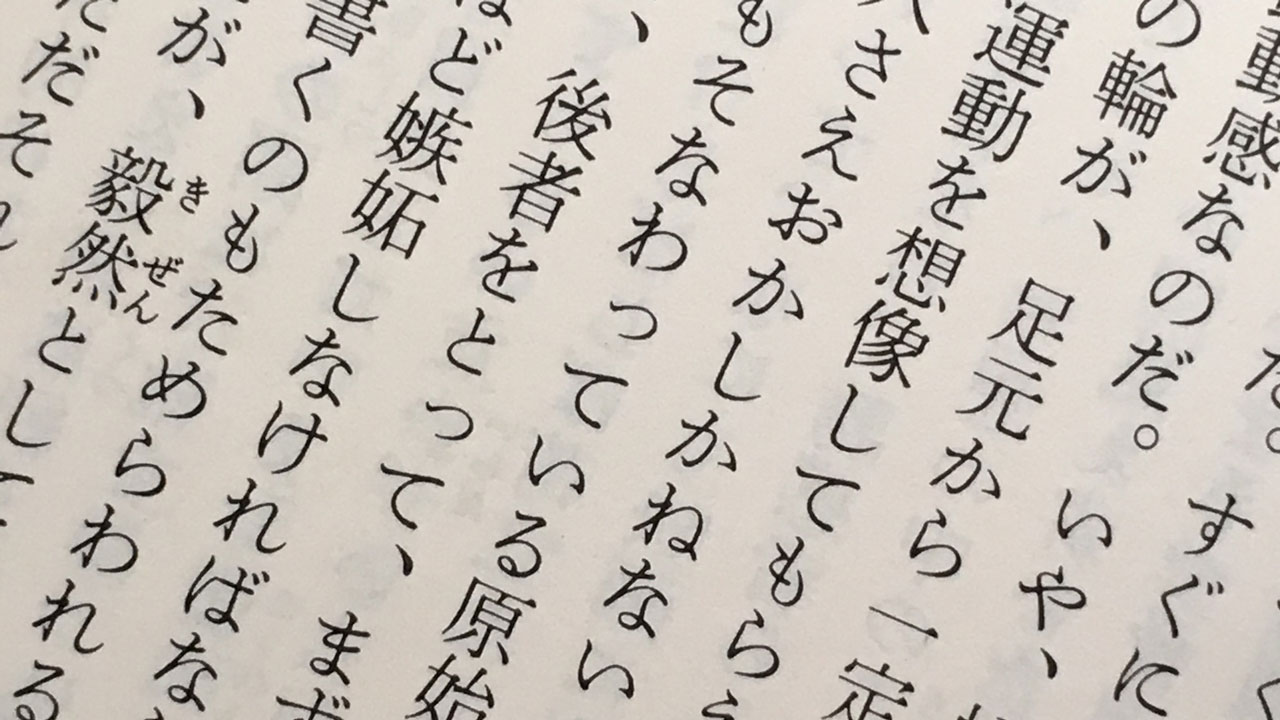 た。すぐに
動感なのだ。いや、
の輪が、足元から一定
運動を想像してもらう
さえおかしかねない
もそなわっている原始
、後者をとって、まず
ほど嫉妬しなければな
書くのもためらわれる
が、毅然として
きぜん
ただそれ